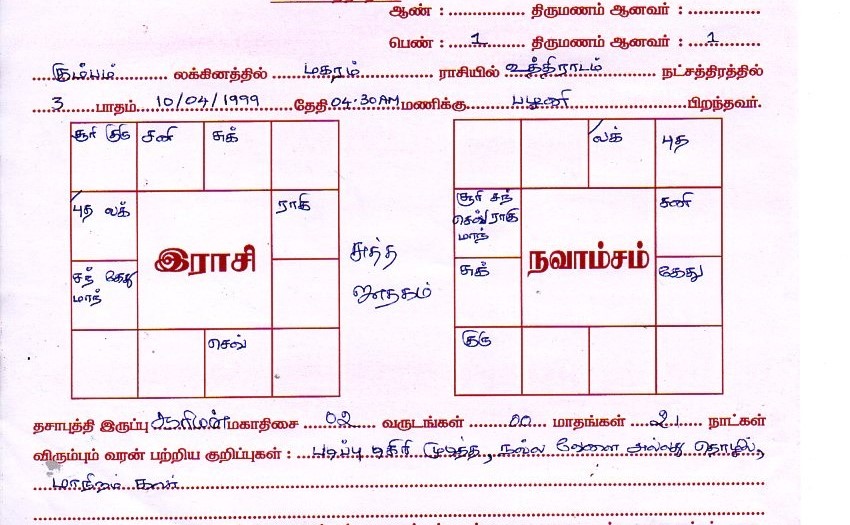 ஆண் : .............. திருமணம் ஆனவர் : ..............
பெண் : ....1.... திருமணம் ஆனவர் : ....1....
...கும்பம்... லக்கினத்தில் ...மகரம்... ராசியில் உத்திராடம் நட்சத்திரத்தில்
3 பாதம் 10/04/1999 தேதி 04.30AM மணிக்கு பழனி பிறந்தவர்.
சூரி குரு சனி சுக்
புத லக் ராகு
இராசி
சந் கேது
மாந்
செவ்
சுத்த
ஜாதகம்
லக் புத
சூரி சந்
செவ் ராகு
மாந்
சனி
நவாம்சம்
சுக் கேது
குரு
தசாபுத்தி இருப்பு சூரியன் மகாதிசை ...02... வருடங்கள் ...00... மாதங்கள் ...21... நாட்கள்
விரும்பும் வரன் பற்றிய குறிப்புகள் : படிப்பு டிகிரி முடித்த, நல்ல வேலை அல்லது தொழில்,
மாநிறம்